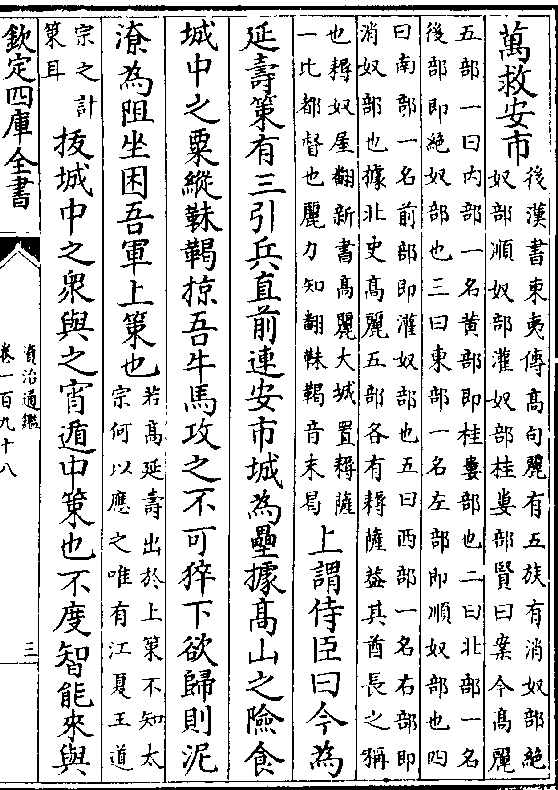 萬救安市後漢書東夷傳高句麗有五族有消奴部絶
奴部順奴部灌奴部桂婁部賢曰案今高麗
五部一曰内部一名黄部即桂婁部也二曰北部一名
後部即絶奴部也三曰東部一名左部即順奴部也四
曰南部一名前部即灌奴部也五曰西部一名右部即
消奴部也據北史高麗五部各有耨薩葢其酋長之稱
也耨奴屋翻新書高麗大城置耨薩
一比都督也麗力知翻靺鞨音末曷
上謂侍臣曰今為
延壽策有三引兵直前連安市城為壘據高山之險食
城中之粟縱靺鞨掠吾牛馬攻之不可猝下欲歸則泥
潦為阻坐困吾軍上策也若高延壽出於上策不知太
宗何以應之唯有江夏王道
宗之計
策耳
拔城中之衆與之宵遁中策也不度智能來與
欽定四庫全書
資治通鑑
卷一百九十八
三